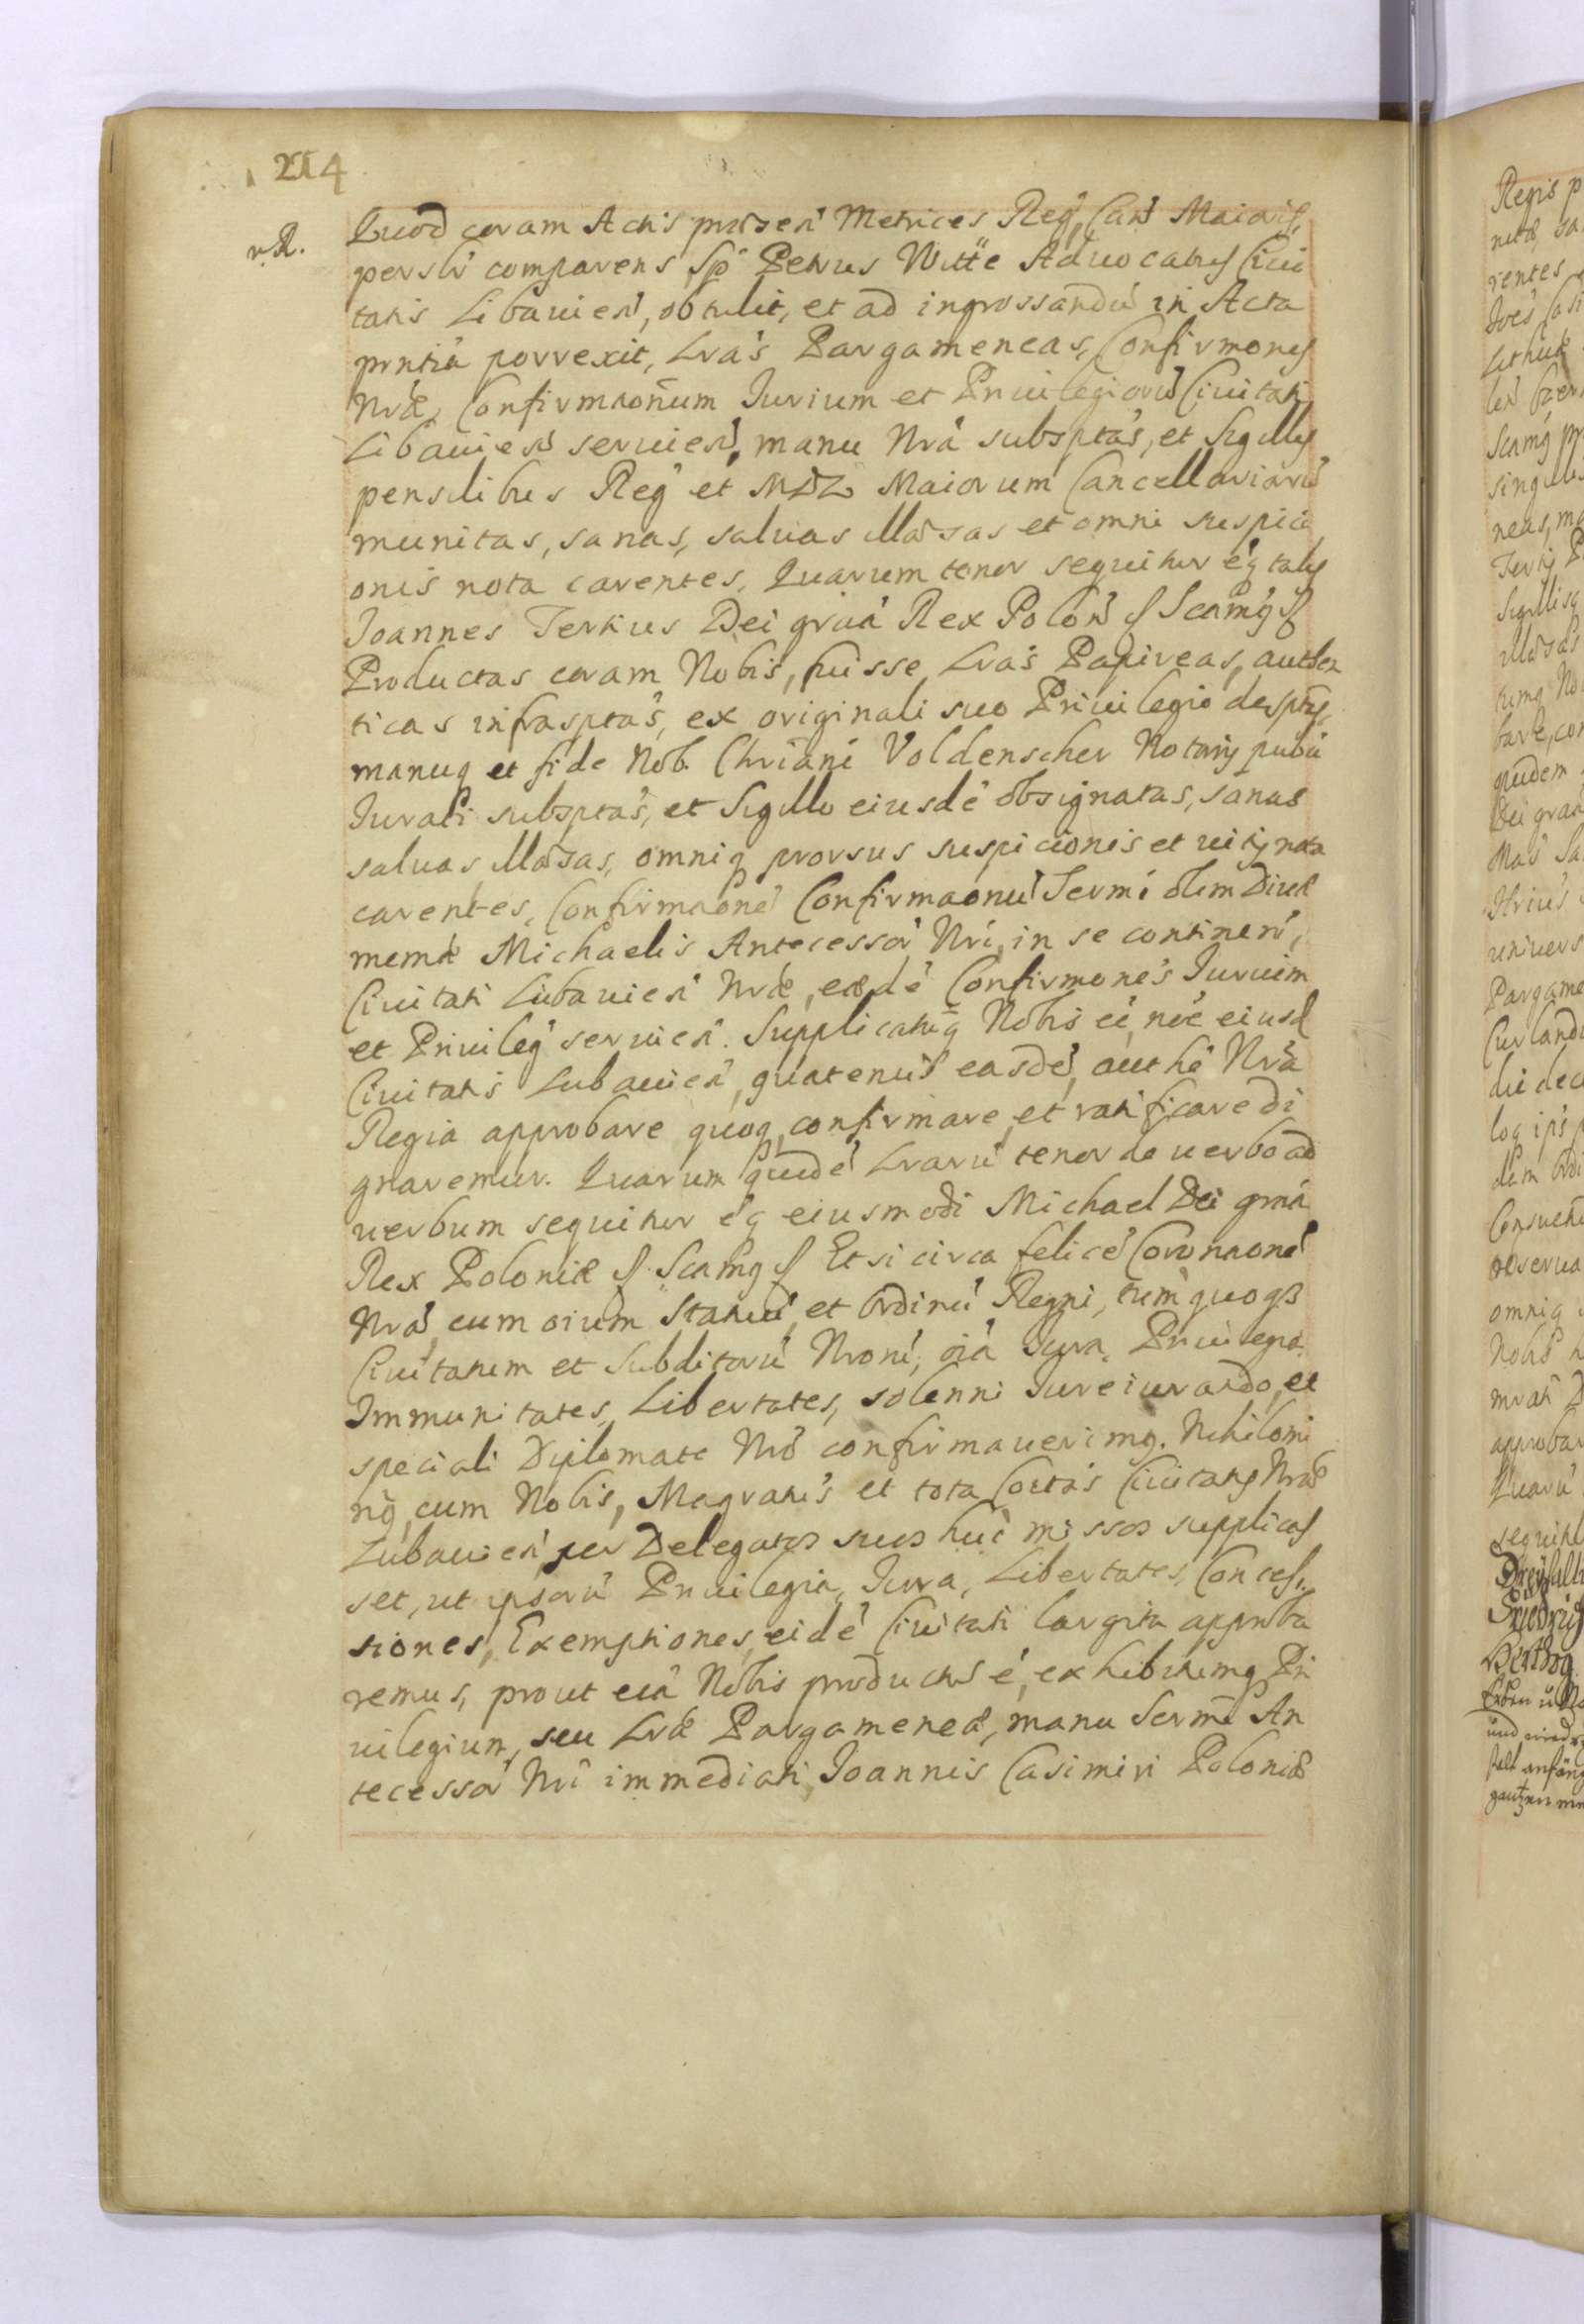 214
n. R.
Quod coram Actis præsen̄ Metrices Regñ Can̄ Maioris,
persłr comparens Sp. Petrus Witte Aduocatus Ciui
tatis Libauien̄, obtulit, et ad ingrossandū in Acta
prntia porrexit, Lras Pargameneas, Confirmones
Nræ, Confirmaonum Jurium et Priuilegiorū Ciuitati
Libauien̄ seruien̄, manu Nrá subsptas, et Sigillis
pensilibus Regñ et MDL Maiorum Cancellariarū
munitas, sanas, saluas illæsas et omni suspici
onis nota carentes, Quarum tenor sequitur eq̨ talis
Joannes Tertius Dei gria Rex Polon̄ ʃ Scamq̨ ʃ
Productas coram Nobis, fuisse Lras Papireas, authen
ticas infrasptas, ex originali suo Priuilegio desptas,
manuq̨ et fide Nob. Chriani Voldenscher Notarij publi
Jurati subsptas, et Sigillo eiusdē obsignatas, sanas
saluas illæsas, omniq̨ prorsus suspicionis et uitij nota
carentes, Confirmaonē Confirmaonū Sermi olim Diuæ
memæ Michaelis Antecessor̄ Nri, in se continen̄,
Ciuitati Libauien̄ Nræ, eædē Confirmones Jurium
et Priuileg̃ seruien̄. Supplicatūq̨ Nobis ē, noē eiusd
Ciuitatis Lubauien̄, quatenus easdē, authē Nrā
Regia approbare quoq̨, confirmare, et ratificare di
gnaremur. Quarum quidē Lrarū tenor de uerbo ad
uerbum sequitur eq̨ eiusmodi Michael Dei gria
Rex Poloniæ ʃ Scamq̨ ʃ Etsi circa felicē Coronaonē
Nrā, cum oium Statuū, et Ordinū Regni, tum quoq̨
Ciuitatum et Subditorū Nrorū, oia Jura, Priuilegia,
Immunitates, Libertates, solenni Jureiurando, et
speciali Diplomate Nro confirmauerimq̨. Nihilomi
nq̨, cum Nobis, Magratus et tota Cōitas Ciuitatis Nræ
Lubauien̄ per Delegatos suos huc missos supplicas
set, ut ipsorū Priuilegia, Jura, Libertates, Conces
siones, Exemptiones, eidē Ciuitati largita approba
remus, prout eiā Nobis productū ē, exhibitumq̨ Pri
uilegium, seu Lræ Pargameneæ, manu Sermi An
tecessor̄ Nri immediati, Joannis Casimiri Poloniæ